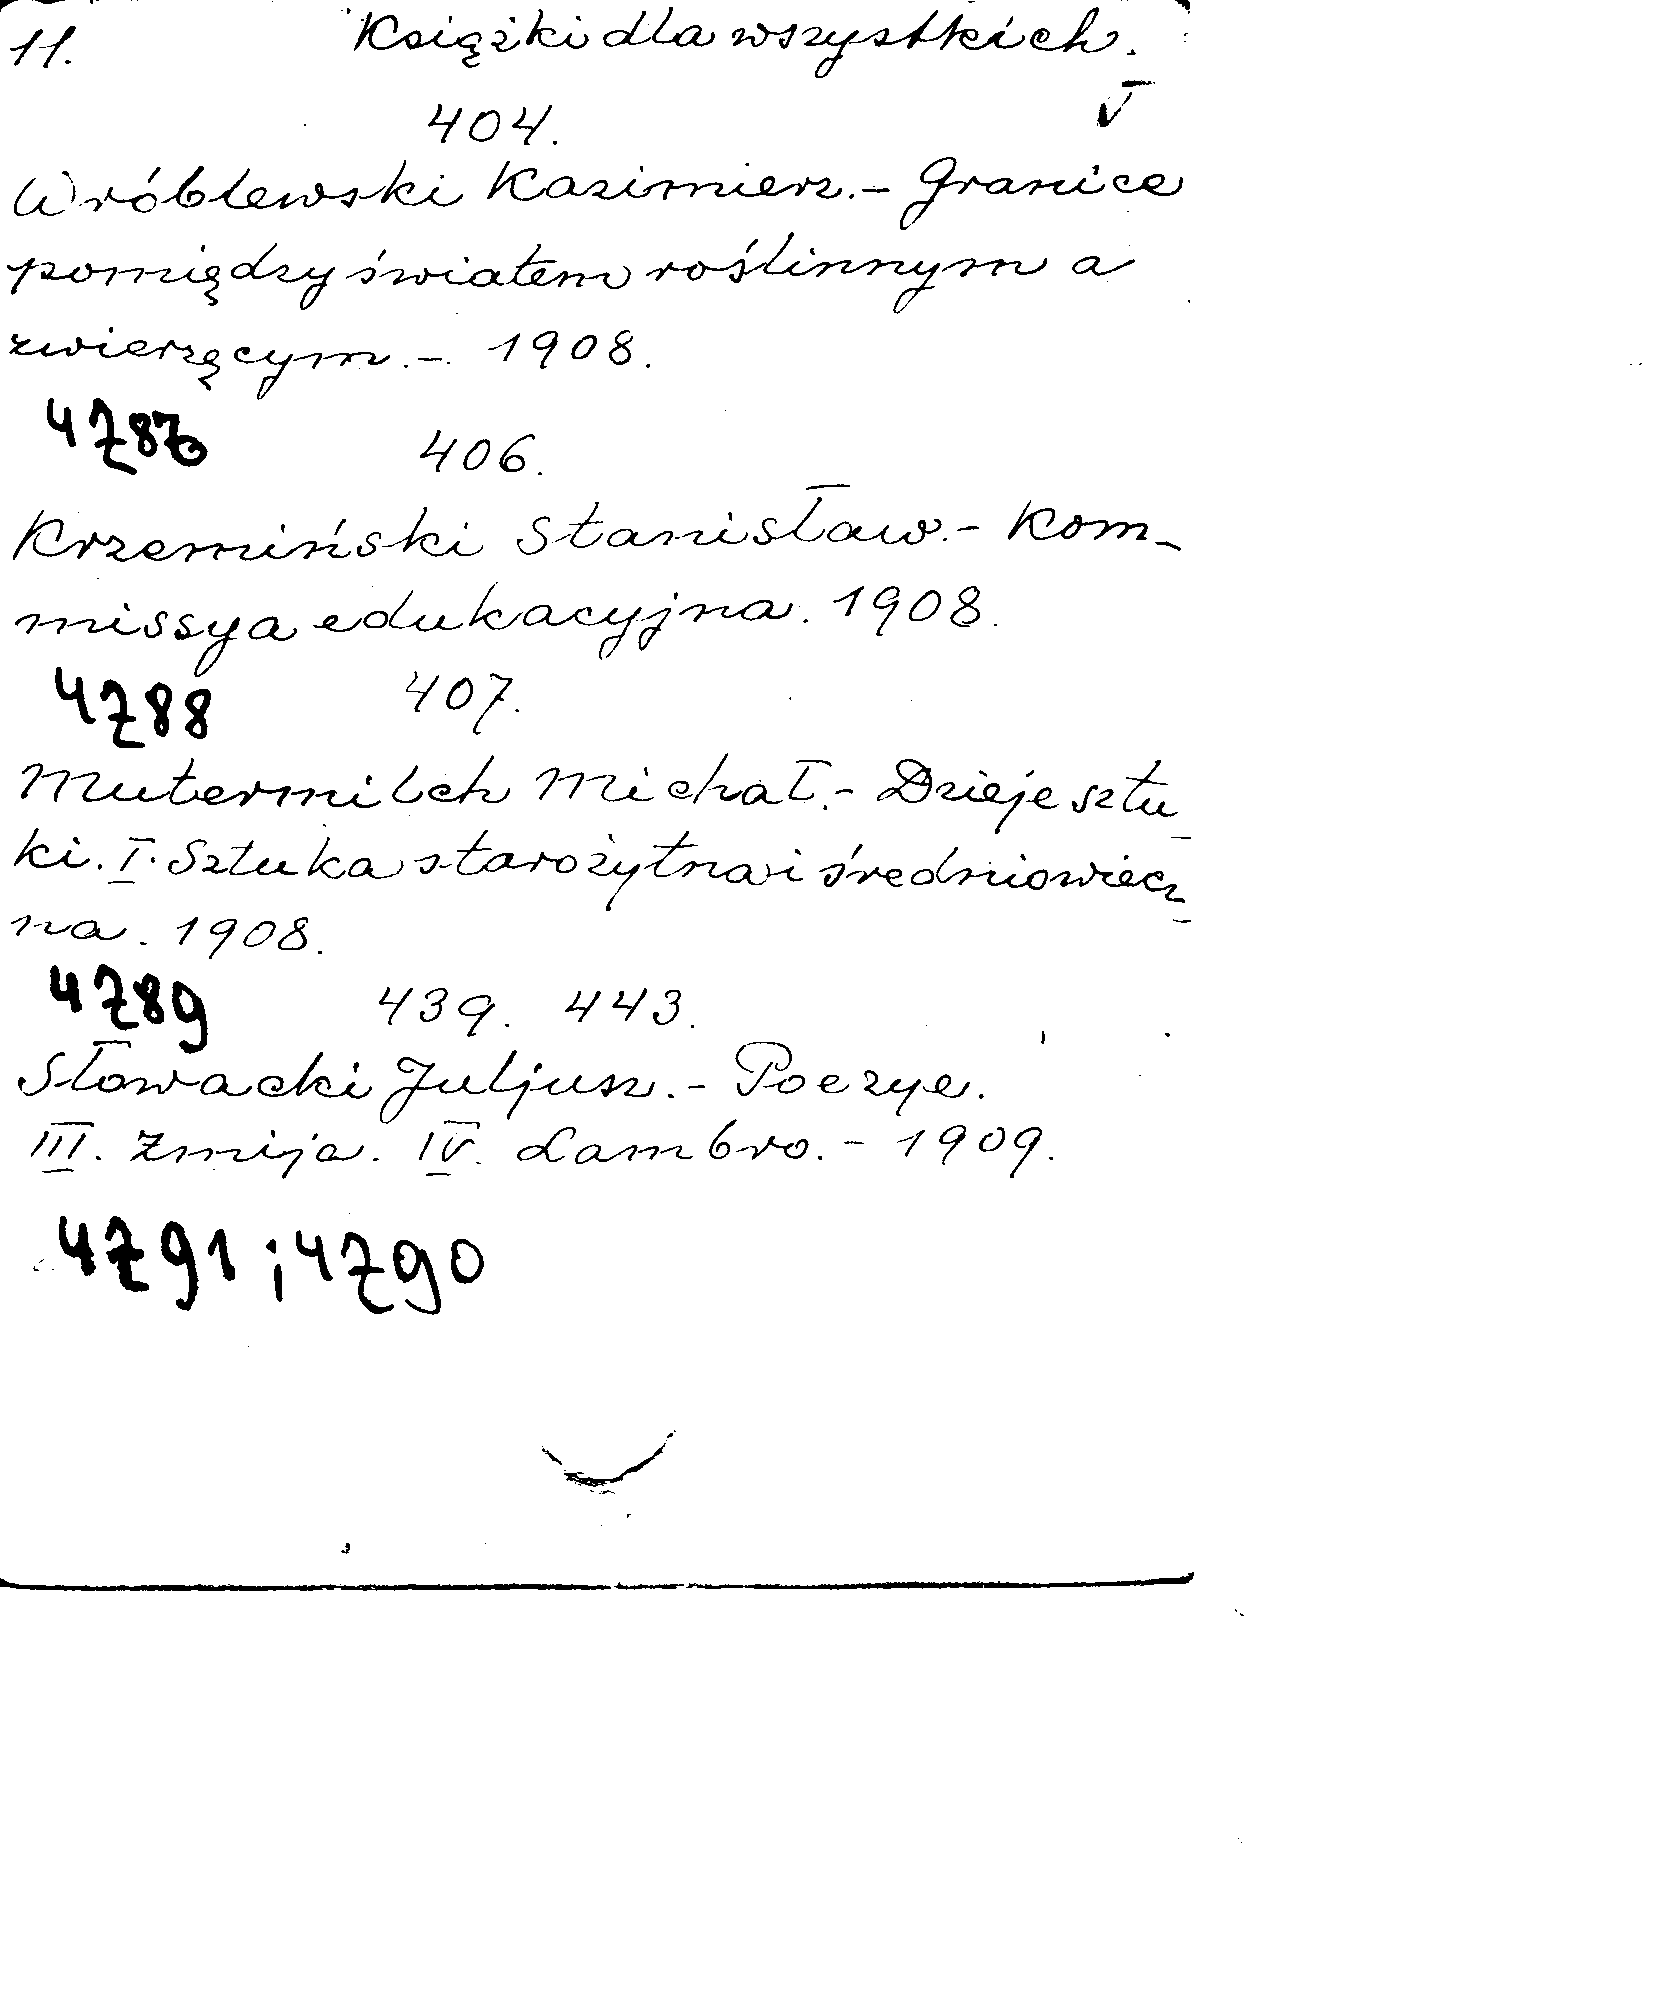 11. Książki dla wszystkich.
V
404.
Wróblewski Kazimierz.- Granice
pomiędzy światem roślinnym a
zwierzęcym.- 1908.
406.
Krzemiński Stanisław.- Kom-
missya edukacyjna. 1908.
4788 407.
Mutermilch Michał.- Dzieje sztu-
ki. I. Sztuka starożytna i średniowiecz-
na. 1908.
4789 439. 443.
Słowacki Juljusz.- Poezye.
III. Żmija. IV. Lambro.- 1909.
4791 ; 4790